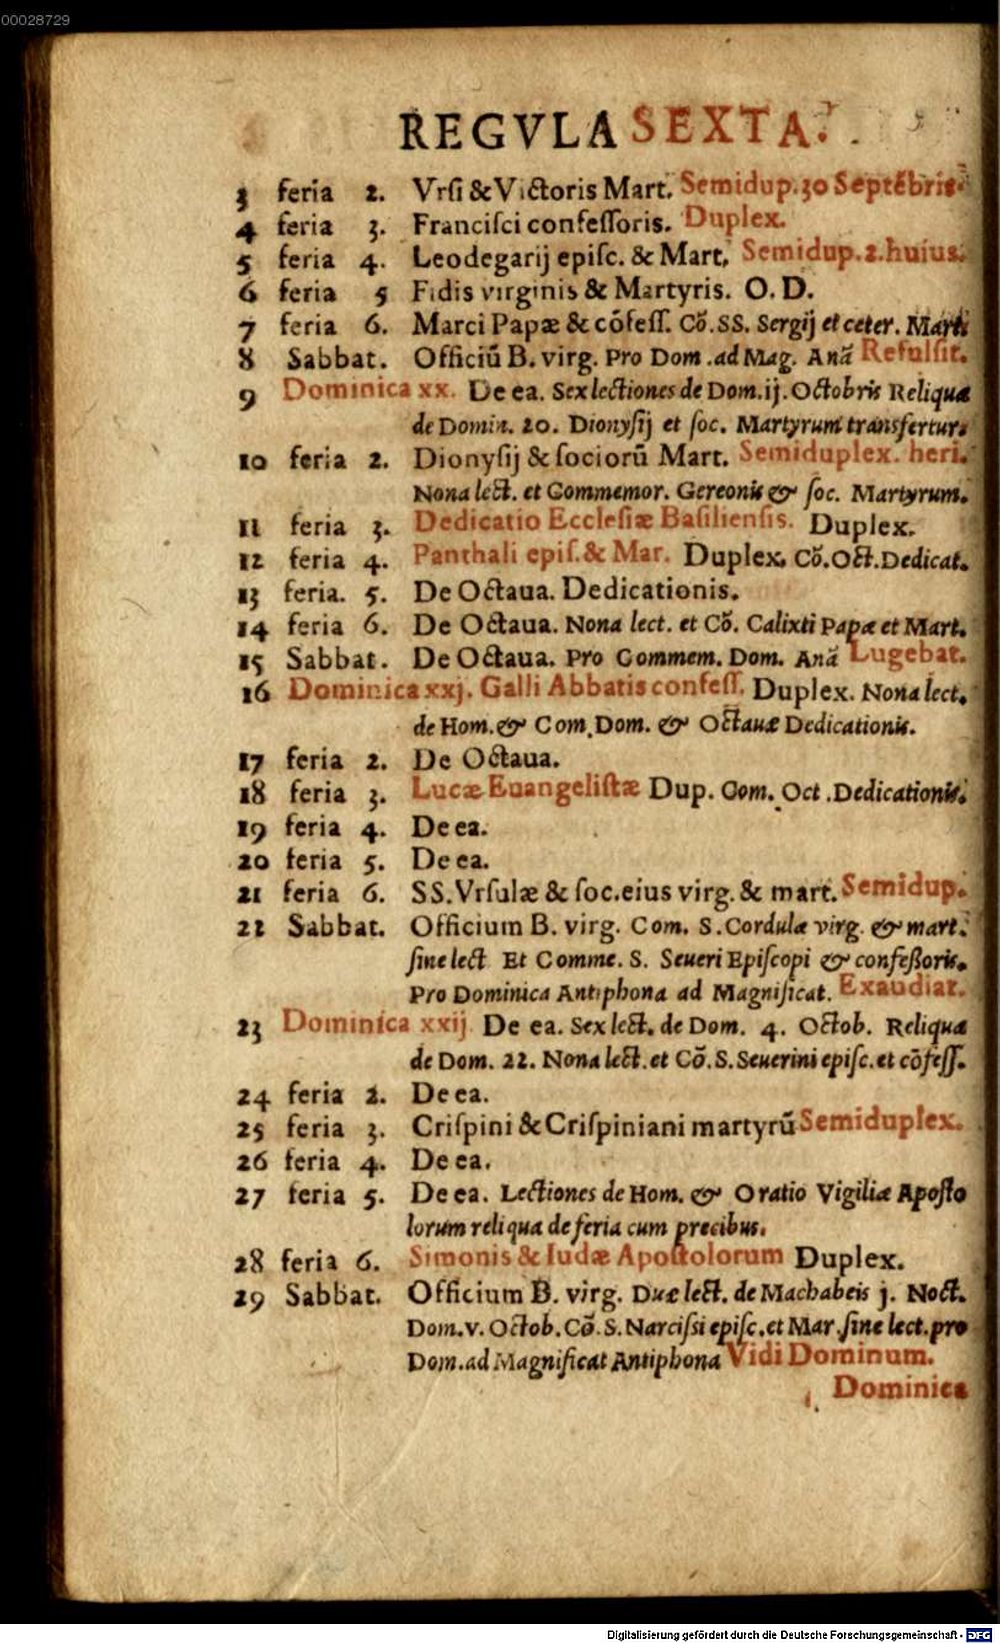 00028729
REGVLA SEXTA.
3 feria 2. Vrſi & Victoris Mart. Semidup. 30 Septēbris.
4 feria 3. Franciſci confeſſoris. Duplex.
5 feria 4. Leodegarij epiſc. & Mart. Semidup. 2. huius.
6 feria 5 Fidis virginis & Martyris. O. D.
7 feria 6. Marci Papæ & cōfeſſ. Cō. SS. Sergij et ceter. Mart.
8 Sabbat. Officiū B. virg. Pro Dom. ad Mag. Anā Refulſit.
9 Dominica xx. De ea. Sex lectiones de Dom. ij. Octobris Reliqua
de Domin. 20. Dionyſij et ſoc. Martyrum transfertur.
10 feria 2. Dionyſij & ſociorū Mart. Semiduplex. heri.
Nona lect. et Commemor. Gereonis & ſoc. Martyrum.
11 feria 3. Dedicatio Eccleſiæ Baſilienſis. Duplex.
12 feria 4. Panthali epiſ. & Mar. Duplex. Cō. Oct. Dedicat.
13 feria. 5. De Octaua. Dedicationis.
14 feria 6. De Octaua. Nona lect. et Cō. Calixti Papæ et Mart.
15 Sabbat. De Octaua. Pro Commem. Dom. Anā Lugebat.
16 Dominica xxj. Galli Abbatis confeſſ. Duplex. Nona lect.
de Hom. & Com. Dom. & Octauæ Dedicationis.
17 feria 2. De Octaua.
18 feria 3. Lucæ Euangeliſtæ Dup. Com. Oct. Dedicationis.
19 feria 4. De ea.
20 feria 5. De ea.
21 feria 6. SS. Vrſulæ & ſoc. eius virg. & mart. Semidup.
22 Sabbat. Officium B. virg. Com. S. Cordulæ virg. & mart.
ſine lect Et Comme. S. Seueri Epiſcopi & confeßoris.
Pro Dominica Antiphona ad Magnificat. Exaudiat.
23 Dominica xxij De ea. Sex lect. de Dom. 4. Octob. Reliqua
de Dom. 22. Nona lect. et Cō. S. Seuerini epiſc. et cōfeſſ.
24 feria 2. De ea.
25 feria 3. Criſpini & Criſpiniani martyrū Semiduplex.
26 feria 4. De ea.
27 feria 5. De ea. Lectiones de Hom. & Oratio Vigiliæ Apoſto
lorum reliqua de feria cum precibus.
28 feria 6. Simonis & Iudæ Apoſtolorum Duplex.
29 Sabbat. Officium B. virg. Duæ lect. de Machabeis j. Noct.
Dom. v. Octob. Cō. S. Narciſsi epiſc. et Mar. ſine lect. pro
Dom. ad Magnificat Antiphona Vidi Dominum.
Dominica
Digitalisierung gefördert durch die Deutsche Forschungsgemeinschaft - DFG